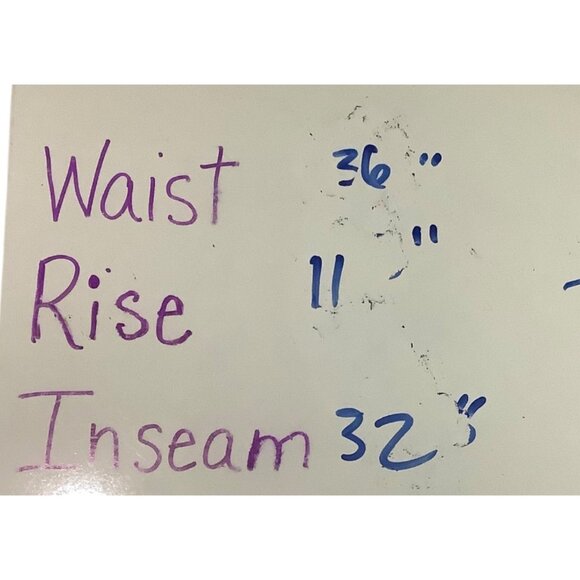 Waist 36"
Rise 11"
Inseam 32"